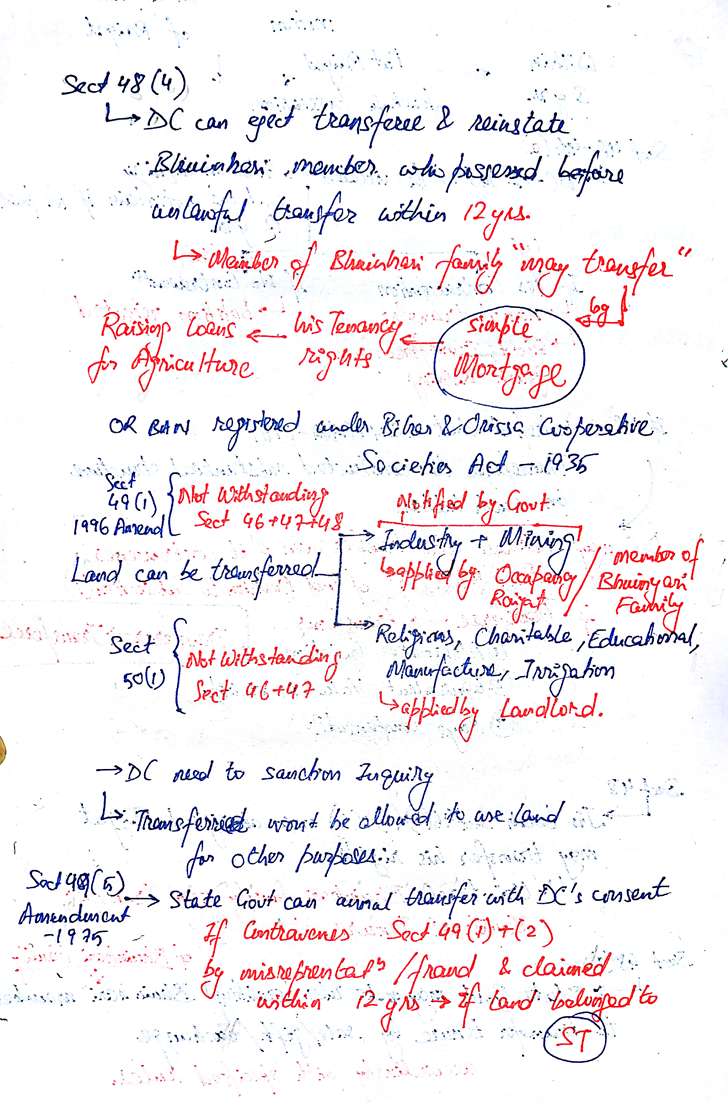 Sect 48(4)
↳ DC can eject transferee & reinstate
Bhuinhari member who possessed before
unlawful transfer within 12 yrs.
↳ Member of Bhuinhari family "may transfer"
by
simple
Mortgage
← his Tenancy
rights
← Raising loans
for Agriculture
OR BAN registered under Bihar & Orissa Cooperative
Societies Act - 1935
Sect
49(1)
1996 Amend
Not Withstanding
Sect 46+47+48
Notified by Govt
Land can be transferred
→ Industry + Mining
↳ applied by Occupancy
Raiyat
/ member of
Bhuinyari
Family
Sect
50(1)
Not Withstanding
Sect 46+47
→ Religious, Charitable, Educational,
Manufacture, Irrigation
↳ applied by Landlord.
→ DC need to sanction Inquiry
↳ Transferred won't be allowed to use land
for other purposes.
Sect 49(5)
Amendment
-1975
→ State Govt can annal transfer with DC's consent
If Contravenes Sect 49(1)+(2)
by misreprentatⁿˢ / fraud & claimed
within 12 yrs → if land belonged to
ST